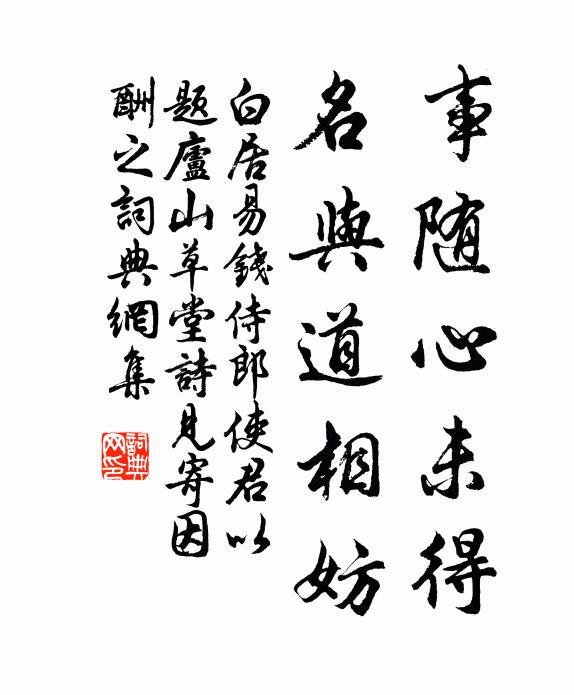 事随心未得
名與道相妨
白居易錢侍郎使君以
题廬山草堂詩見寄因
酬之詞典網集
詞典网印